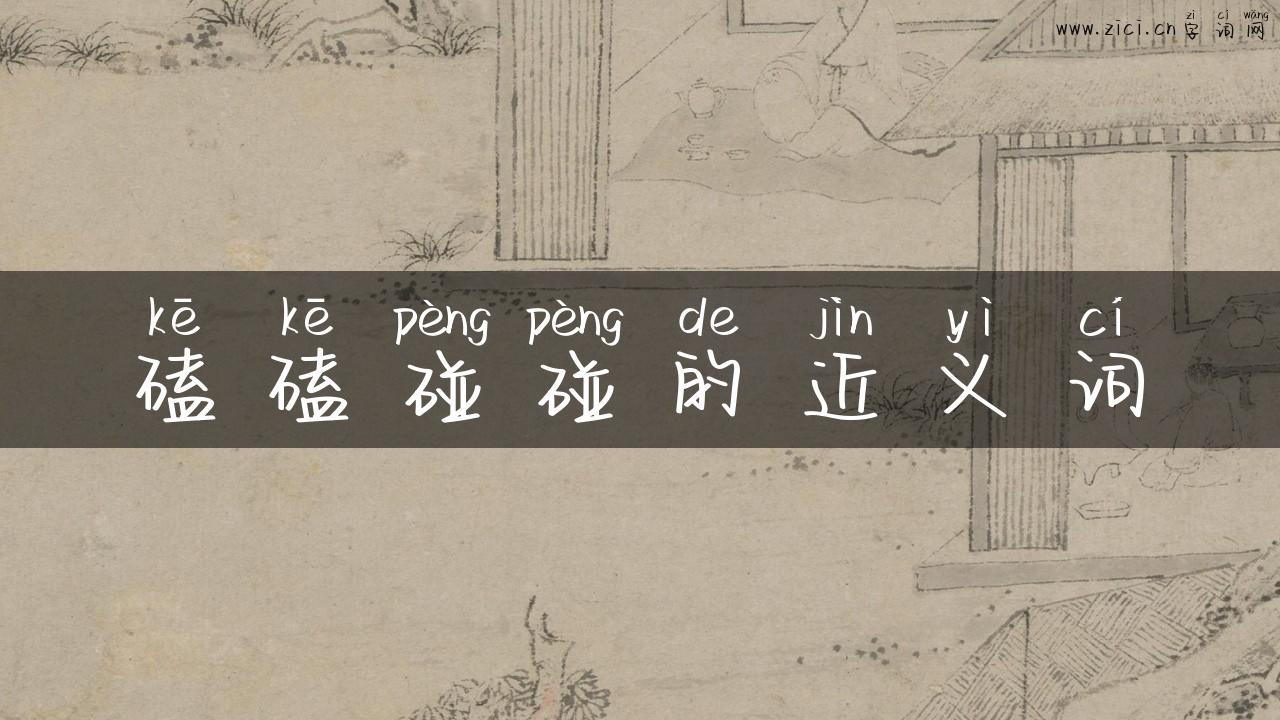 zì cí wǎng
www.zici.cn 字词网
kē kē pèng pèng de jìn yì cí
磕磕碰碰的近义词